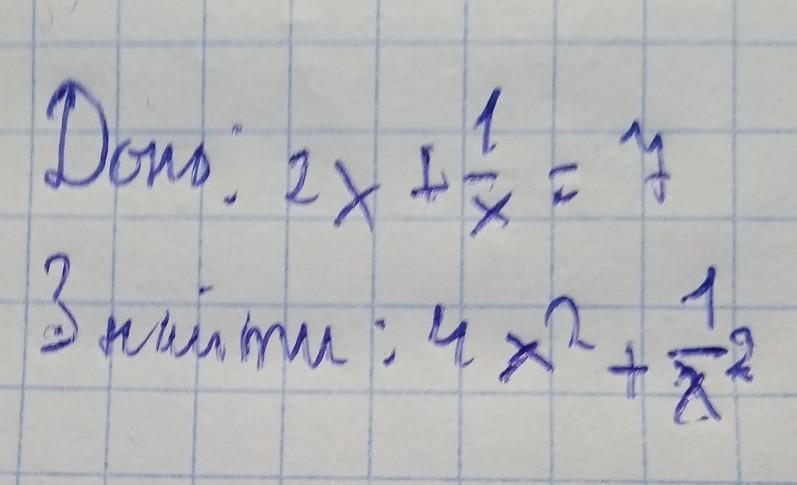 Дано: 2x + 1/x = 7
Знайти: 4x² + 1/x²